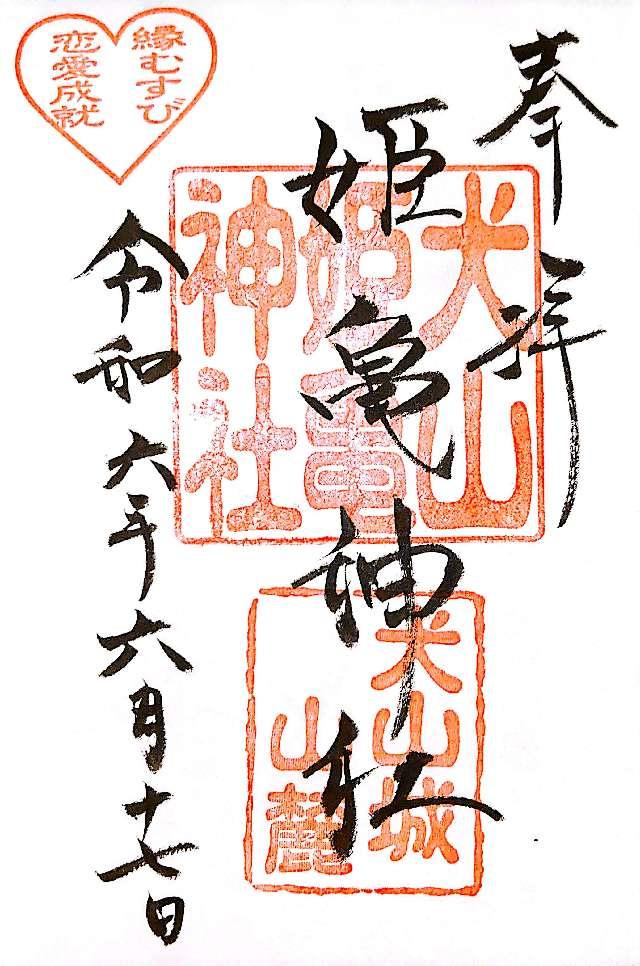 奉拝
姫亀神社
令和六年六月十七日
縁むすび
恋愛成就
犬山
姫亀
神社
犬山城
山麓